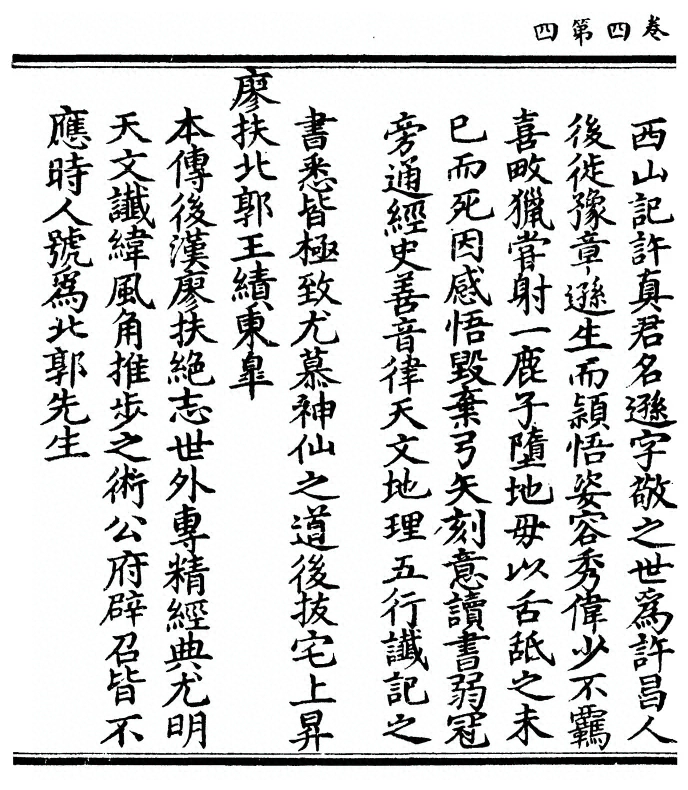 卷四第四
西山記許真君名遜字敬之世為許昌人
後徙豫章遜生而頴悟姿容秀偉少不羈
喜畋獵甞射一鹿子墮地毋以舌舐之未
已而死因感悟毀棄弓矢刻意讀書弱冠
旁通經史善音律天文地理五行讖記之
書悉皆極致尤慕神仙之道後拔宅上昇
廖扶北郭王績東皐
本傳後漢廖扶絶志世外專精經典尤明
天文讖緯風角推步之術公府辟召皆不
應時人號為北郭先生